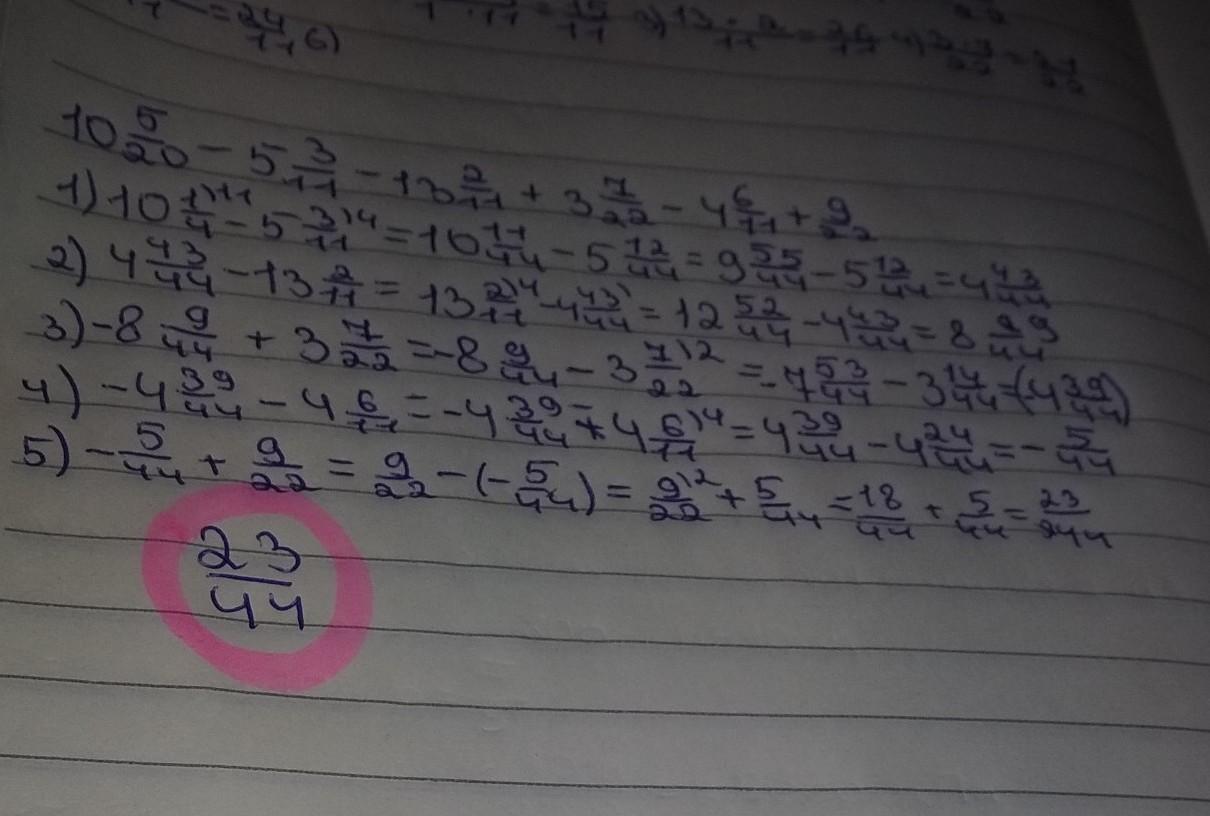 = 24/11 6)
10 5/20 - 5 3/11 - 13 2/11 + 3 7/22 - 4 6/11 + 9/22
1) 10 1/4)11 - 5 3/11)4 = 10 11/44 - 5 12/44 = 9 55/44 - 5 12/44 = 4 43/44
2) 4 43/44 - 13 2/11 = 13 2/11)4 - 4 43/44) = 12 52/44 - 4 43/44 = 8 9/44 9
3) -8 9/44 + 3 7/22 = -8 9/44 - 3 7/22)2 = -7 53/44 - 3 14/44 = (-4 39/44)
4) -4 39/44 - 4 6/11 = -4 39/44 + 4 6/11)4 = 4 39/44 - 4 24/44 = - 5/44
5) - 5/44 + 9/22 = 9/22 - (- 5/44) = 9/22)2 + 5/44 = 18/44 + 5/44 = 23/44
23/44